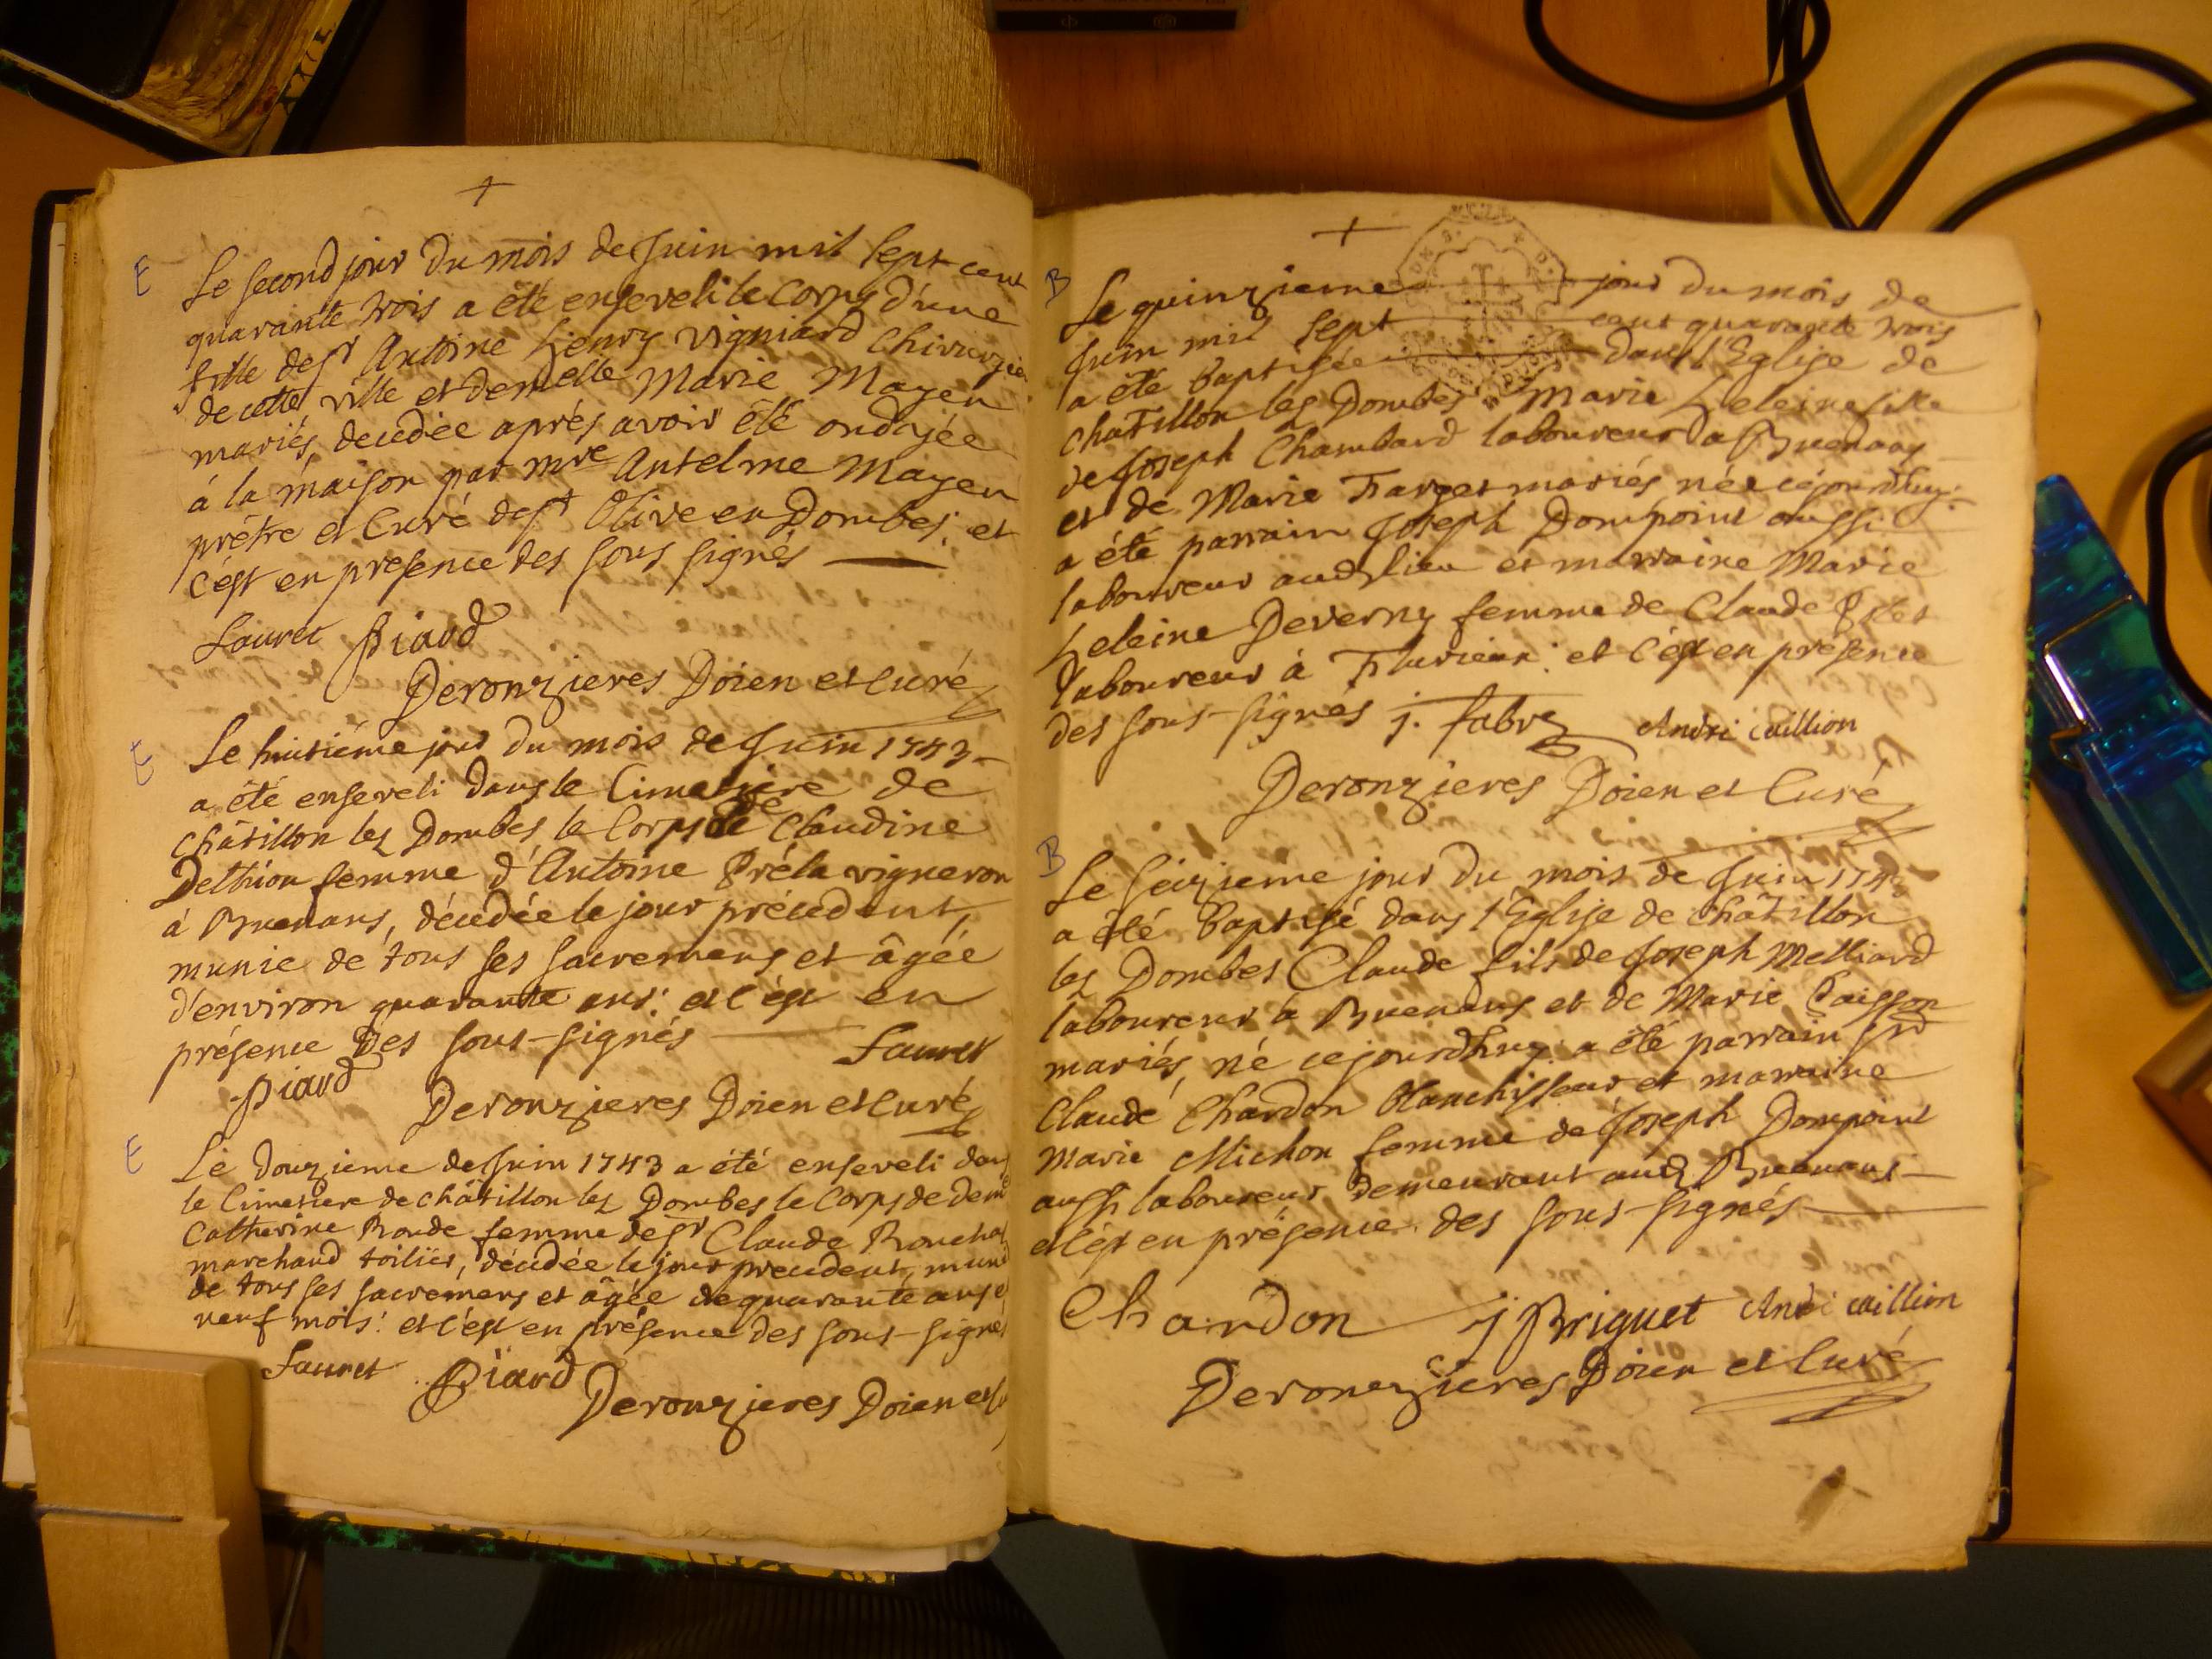 +
E
Le second jour du mois de Juin mil sept cent
quarante trois a été enseveli le Corps d'une
fille de sr Antoine henry vigniard Chirurgien
de cette ville et demelle Marie Mayen
mariés, decedée aprés avoir été ondoyée
á la maison par mre Antelme Mayen
prêtre et Curé de st Olive en Dombes: et
c'est en presence des sous signés
Fauret Piard
Deronzieres Doien et Curé
E
Le huitiéme jour du mois de Juin 1743
a été enseveli dans le Cimetiere de
Châtillon lez Dombes le Corps de Claudine
Delthion femme d'Antoine Préla vigneron
á Buenans, décedée le jour précedent,
munie de tous ses sacremens et âgée
d'environ quarante ans: et c'est en
présence des sous-signés
Fauret
Piard
Deronzieres Doien et Curé
E
Le douzieme de Juin 1743 a été enseveli dans
le Cimetiere de châtillon lez Dombes le Corps de deme
Catherine Ronde femme de sr Claude
marchand toilier, décedée le jour precedent, munie
de tous ses sacremens et âgée de quarante ans et
neuf mois: et c'est en présence des sous-signés
Fauret Piard
Deronzieres Doien et
+
B
Le quinzieme jour du mois de
Juin mil sept cent quarante trois
a été baptisée dans l'Eglise de
Chatillon les Dombes Marie heleine fille
de Joseph Chambard laboureur a Buenans
et de Marie Farget mariés née cejourdhuy:
a été parrain Joseph Dompoint aussi
laboureur aud. lieu et marraine Marie
heleine Deverny femme de Claude
laboureur à Flurieux: et c'est en présence
des sous-signés j. fabre André caillion
Deronzieres Doien et Curé
B
Le seizieme jour du mois de Juin 1743
a été baptisé dans l'Eglise de châtillon
les Dombes Claude fils de Joseph Melliard
laboureur à Buenans et de Marie Caisson
mariés, né cejourdhuy: a été parrain sr
Claude Chardon blanchisseur et marraine
Marie Michon femme de Joseph Dompoint
aussi laboureur demeurant aud. Buenans
et c'est en présence des sous-signés
Chardon j Briguet André caillion
Deronzieres Doien et Curé